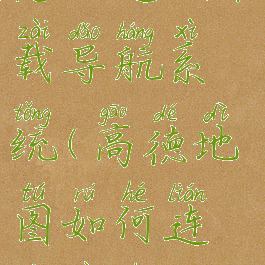 zài dǎo háng xì
载导航系
tǒng gāo dé dì
统(高德地
tú rú hé lián
图如何连